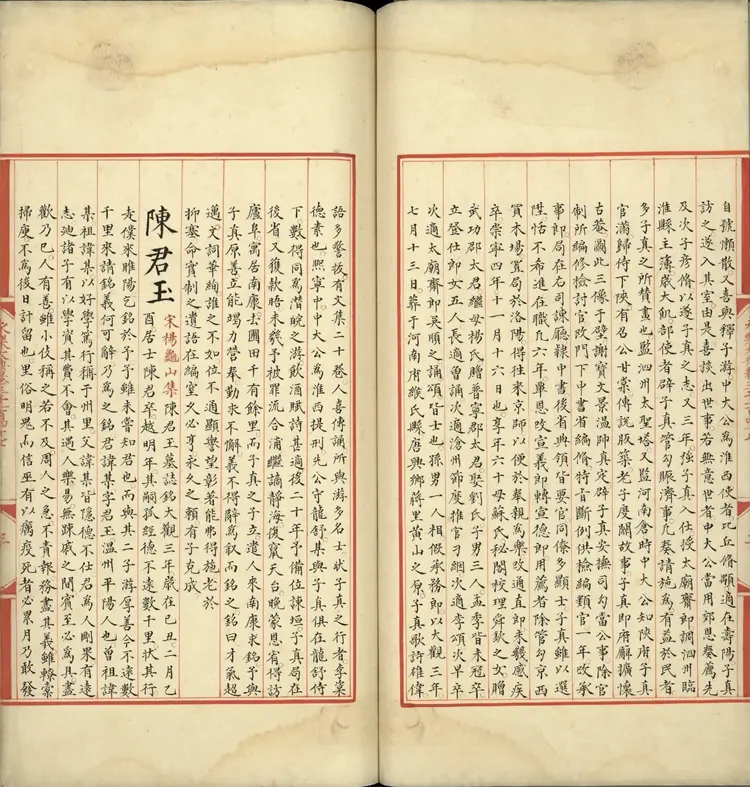 自號懶散又喜與釋子游中大公為淮西使者比丘脩顒適在壽陽子真
訪之遂入其室由是喜談出世事若無意世者中大公當用郊恩奏薦先
及次子彥脩以遂子真之志又三年強子真入仕授太廟齋郎調泗州臨
淮縣主簿歲大飢部使者辟子真管勾賑濟事凡奏請施為有益於民者
多子真之所贊畫也監泗州太聖塔又監河南倉時中大公知陝府子真
官滿歸侍下陝有召公甘棠傳說版築老子度關故事子真即府廨擴懷
古菴圖此三像于壁謝寶文景溫帥真定辟子真安撫司勾當公事除官
制所編修檢討官改門下中書省編脩條旨斷例供檢編類官一年改承
事郎局在右司諫廳隸中書後省典領皆要官同僚多顯士子真雖以選
陞恬不希進在職凡六年單恩改宣義郎轉宣德郎用薦者除管勾京西
買木場置局於洛陽得往來京師以便於奉親為樂改通直郎未幾感疾
卒崇寧四年十一月十六日也享年六十母蘇氏秘閣校理舜欽之女贈
武功郡太君繼母楊氏贈普寧郡太君娶劉氏子男三人孟季皆未冠卒
立登仕郎女五人長適曾誦次適滄州節度推官刁繩次適李頌次早卒
次適太廟齋郎吳順之誦頌皆士也孫男一人相假承務郎以大觀三年
七月十三日葬于河南府緱氏縣唐興鄉蔣里黃山之原子真歌詩雄偉
語多警拔有文集二十卷人喜傳誦所與游多名士狀子真之行者李棠
德素也熙寧中中大公為淮西提刑先公守龍舒其與子真俱在龍舒侍
下數得同為潛皖之游飲酒賦詩甚適後二十年予備位諫垣子真局在
後省又獲款晤未幾予被罪流合浦繼謫靜海復竄天台晚蒙恩宥得訪
廬阜寓居南康去圃田千有餘里而子真之子立遣人來南康求銘予與
子真原善立能竭力營奉勤求不懈義不得辭為叙而銘之銘曰才氣超
邁文詞華絢誰之不如位不通顯譽望彰著能弗得施老於
抑塞命實制之遺語在編室久必亨永久之賴有子克成
陳君玉
宋楊龜山集
陳君玉墓誌銘大觀三年歲在己丑二月乙
酉居士陳君卒越明年其嗣孤經德不遠數千里狀其行
走僕來睢陽乞銘於予予雖未嘗知君也而與其二子游厚善今不遠數
千里來請銘義何可辭乃為之銘君諱某字君玉溫州平陽人也曾祖諱
某祖諱某以好學篤行稱于州里父諱某皆隱德不仕君為人剛果有遠
志迪諸子有以學資其費不會其遇人樂易無疎戚之間賓至必為具盡
歡乃已人有善雖小伎稱之若不及周人之急不責報務盡其義雖轑橐
掃廋不為後日計留也里俗明鬼尚信巫有以癘疫死者必累月乃敢發